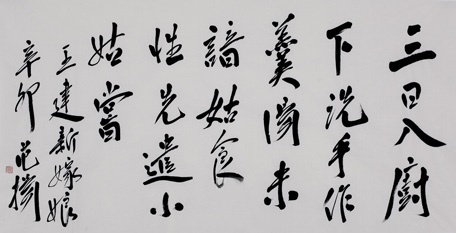 三日入廚
下洗手作
羹湯未
諳姑食
性先遣小
姑嘗
王建新嫁娘
辛卯范揚